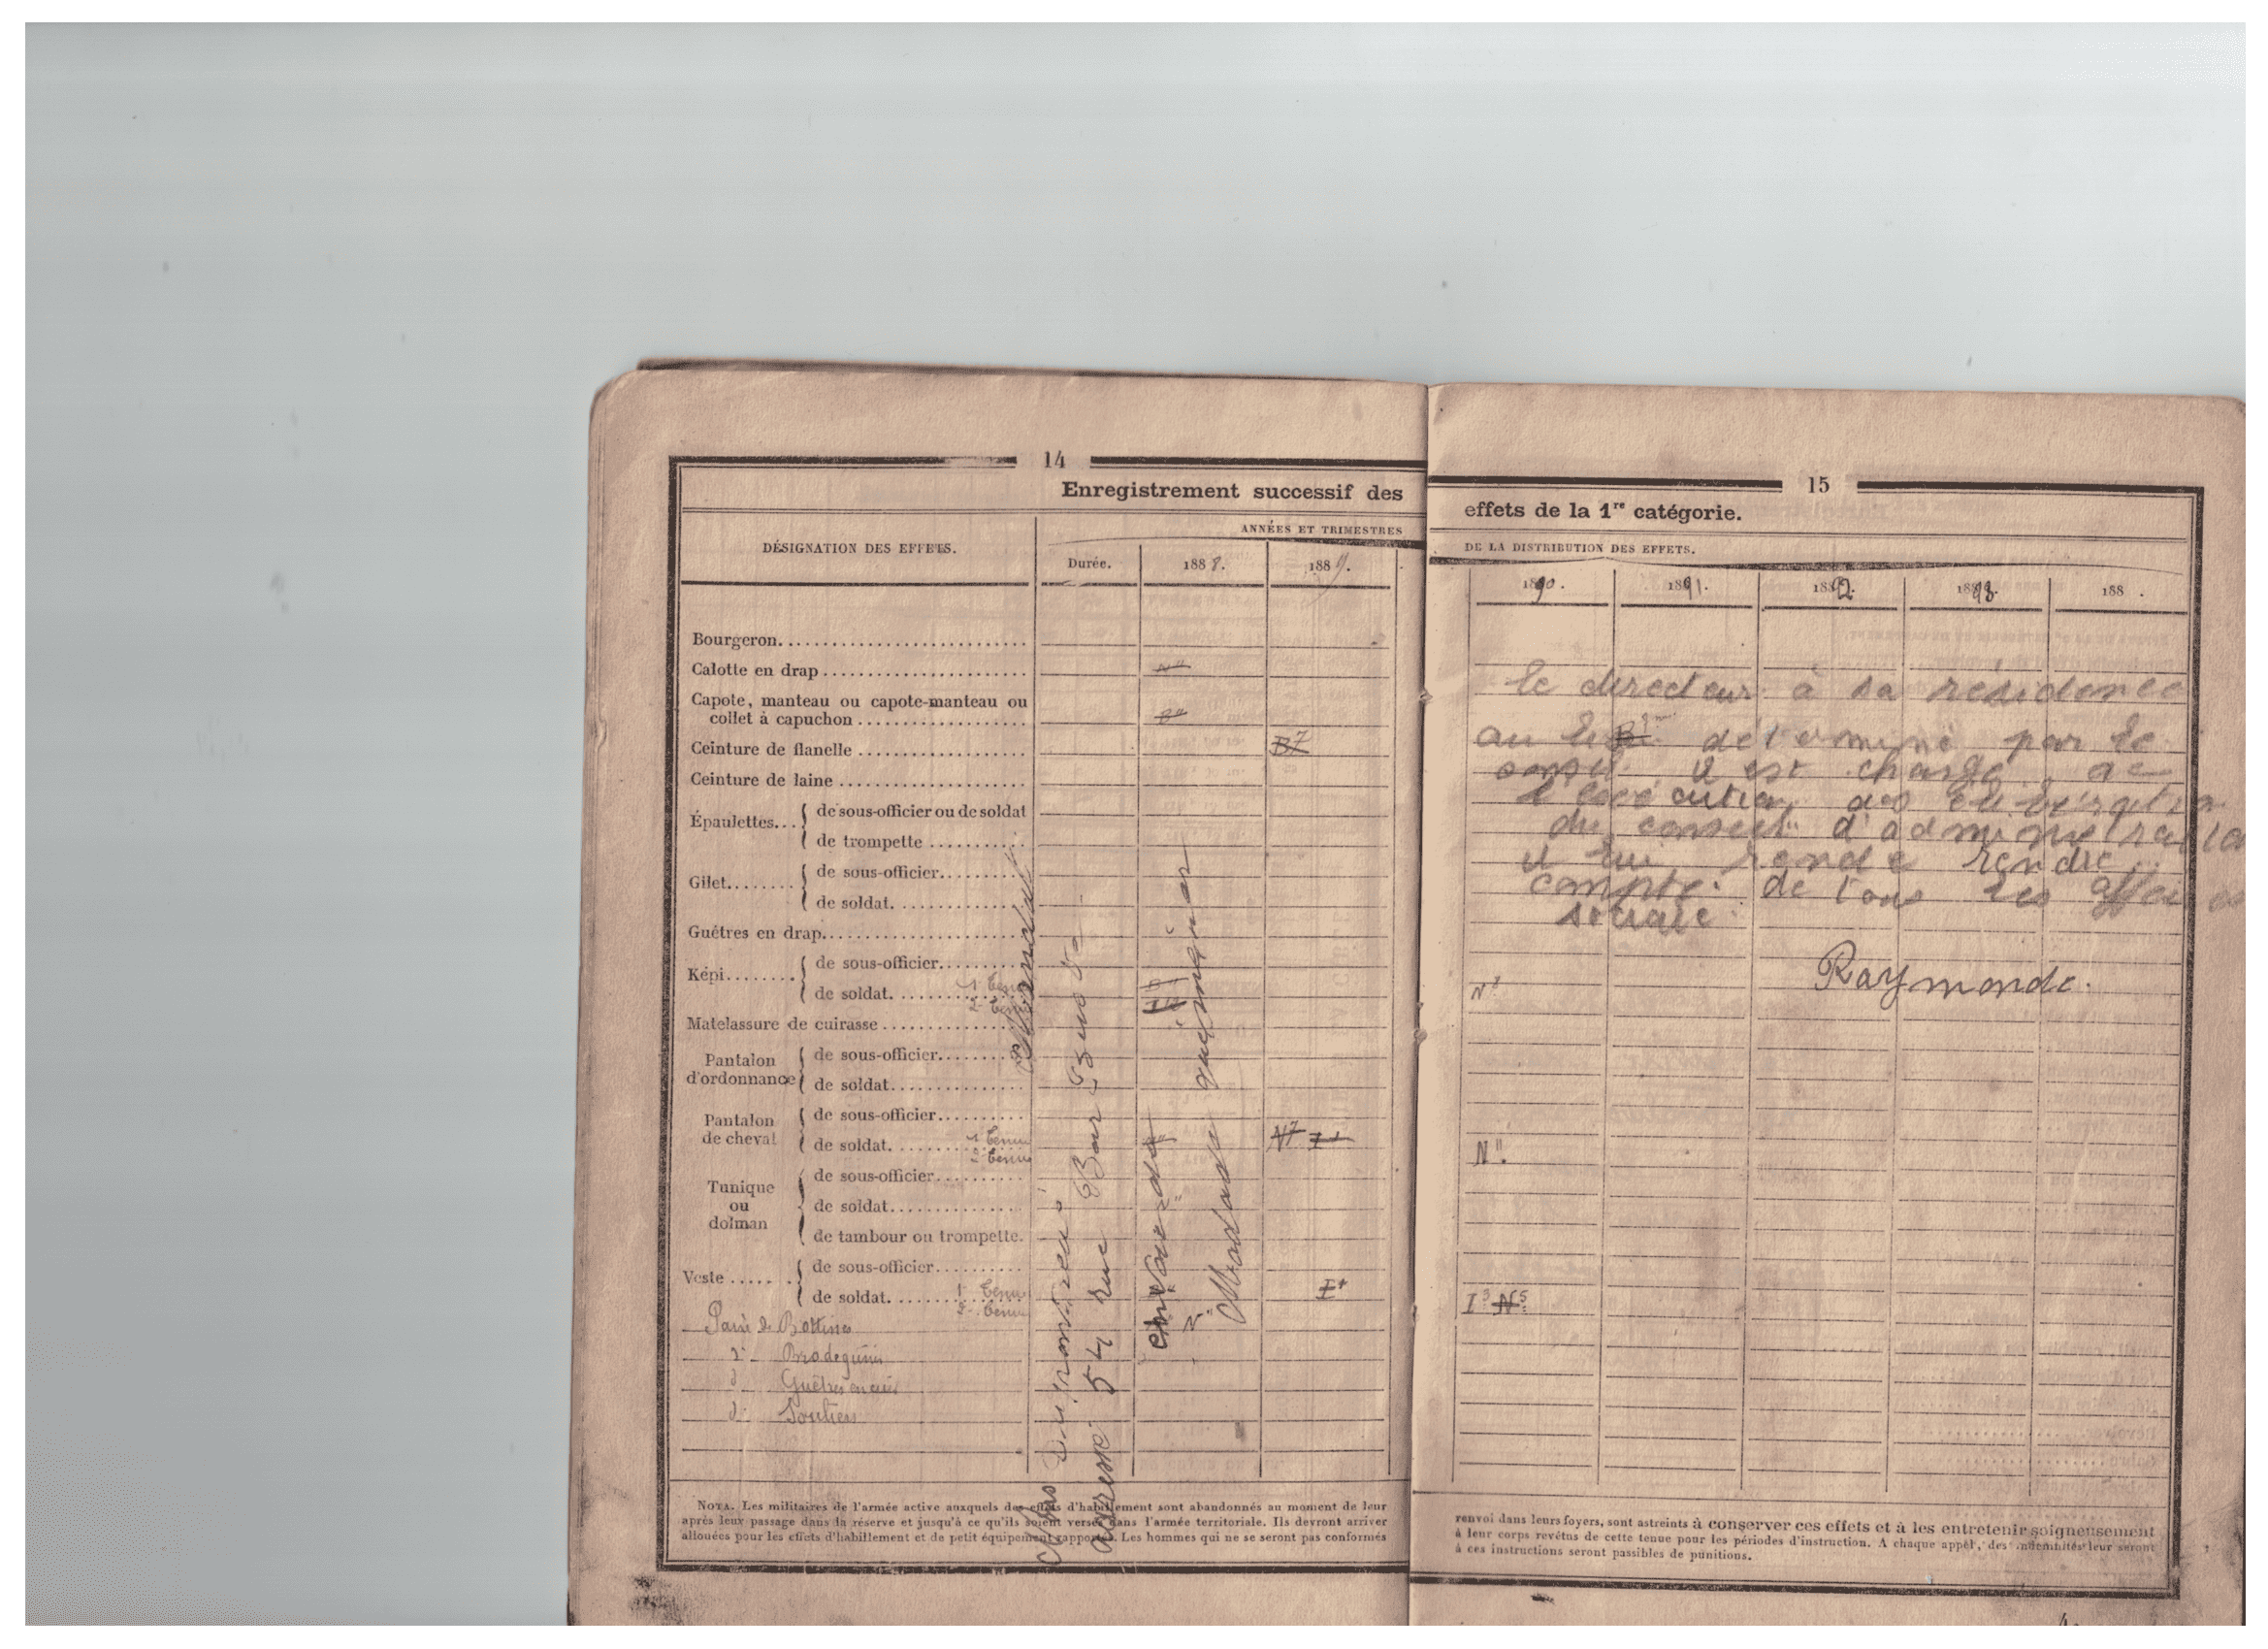 14
Enregistrement successif des
DÉSIGNATION DES EFFETS.
ANNÉES ET TRIMESTRES
Durée.
1888.
1889.
Bourgeron
Calotte en drap
Capote, manteau ou capote-manteau ou
collet à capuchon
Ceinture de flanelle
B7
Ceinture de laine
Épaulettes
de sous-officier ou de soldat
de trompette
Gilet
de sous-officier
de soldat
Guêtres en drap
Képi
de sous-officier
de soldat
Matelassure de cuirasse
Pantalon
d'ordonnance
de sous-officier
de soldat
Pantalon
de cheval
de sous-officier
de soldat. 1 tenue
2 tenue
N7
Tunique
ou
dolman
de sous-officier
de soldat
de tambour ou trompette.
Veste
de sous-officier
de soldat. 1 tenue
2 tenue
Paire de Bottines
d° Brodequins
d° Guêtres en cuir
d° Souliers
adresse 54 rue Bar
NOTA. Les militaires de l'armée active auxquels des effets d'habillement sont abandonnés au moment de leur
après leur passage dans la réserve et jusqu'à ce qu'ils soient versés dans l'armée territoriale. Ils devront arriver
allouées pour les effets d'habillement et de petit équipement rapportés. Les hommes qui ne se seront pas conformés
15
effets de la 1re catégorie.
DE LA DISTRIBUTION DES EFFETS.
1890.
1891.
1892.
1893.
188 .
le directeur à sa residence
au determine par le
il est charge de
l'
du conseil d'administration
il lui rende rendre
compte de tous les
Raymonde.
N"
N".
I3 N5
renvoi dans leurs foyers, sont astreints à conserver ces effets et à les entretenir soigneusement
à leur corps revêtus de cette tenue pour les périodes d'instruction. A chaque appel, des indemnités leur seront
à ces instructions seront passibles de punitions.